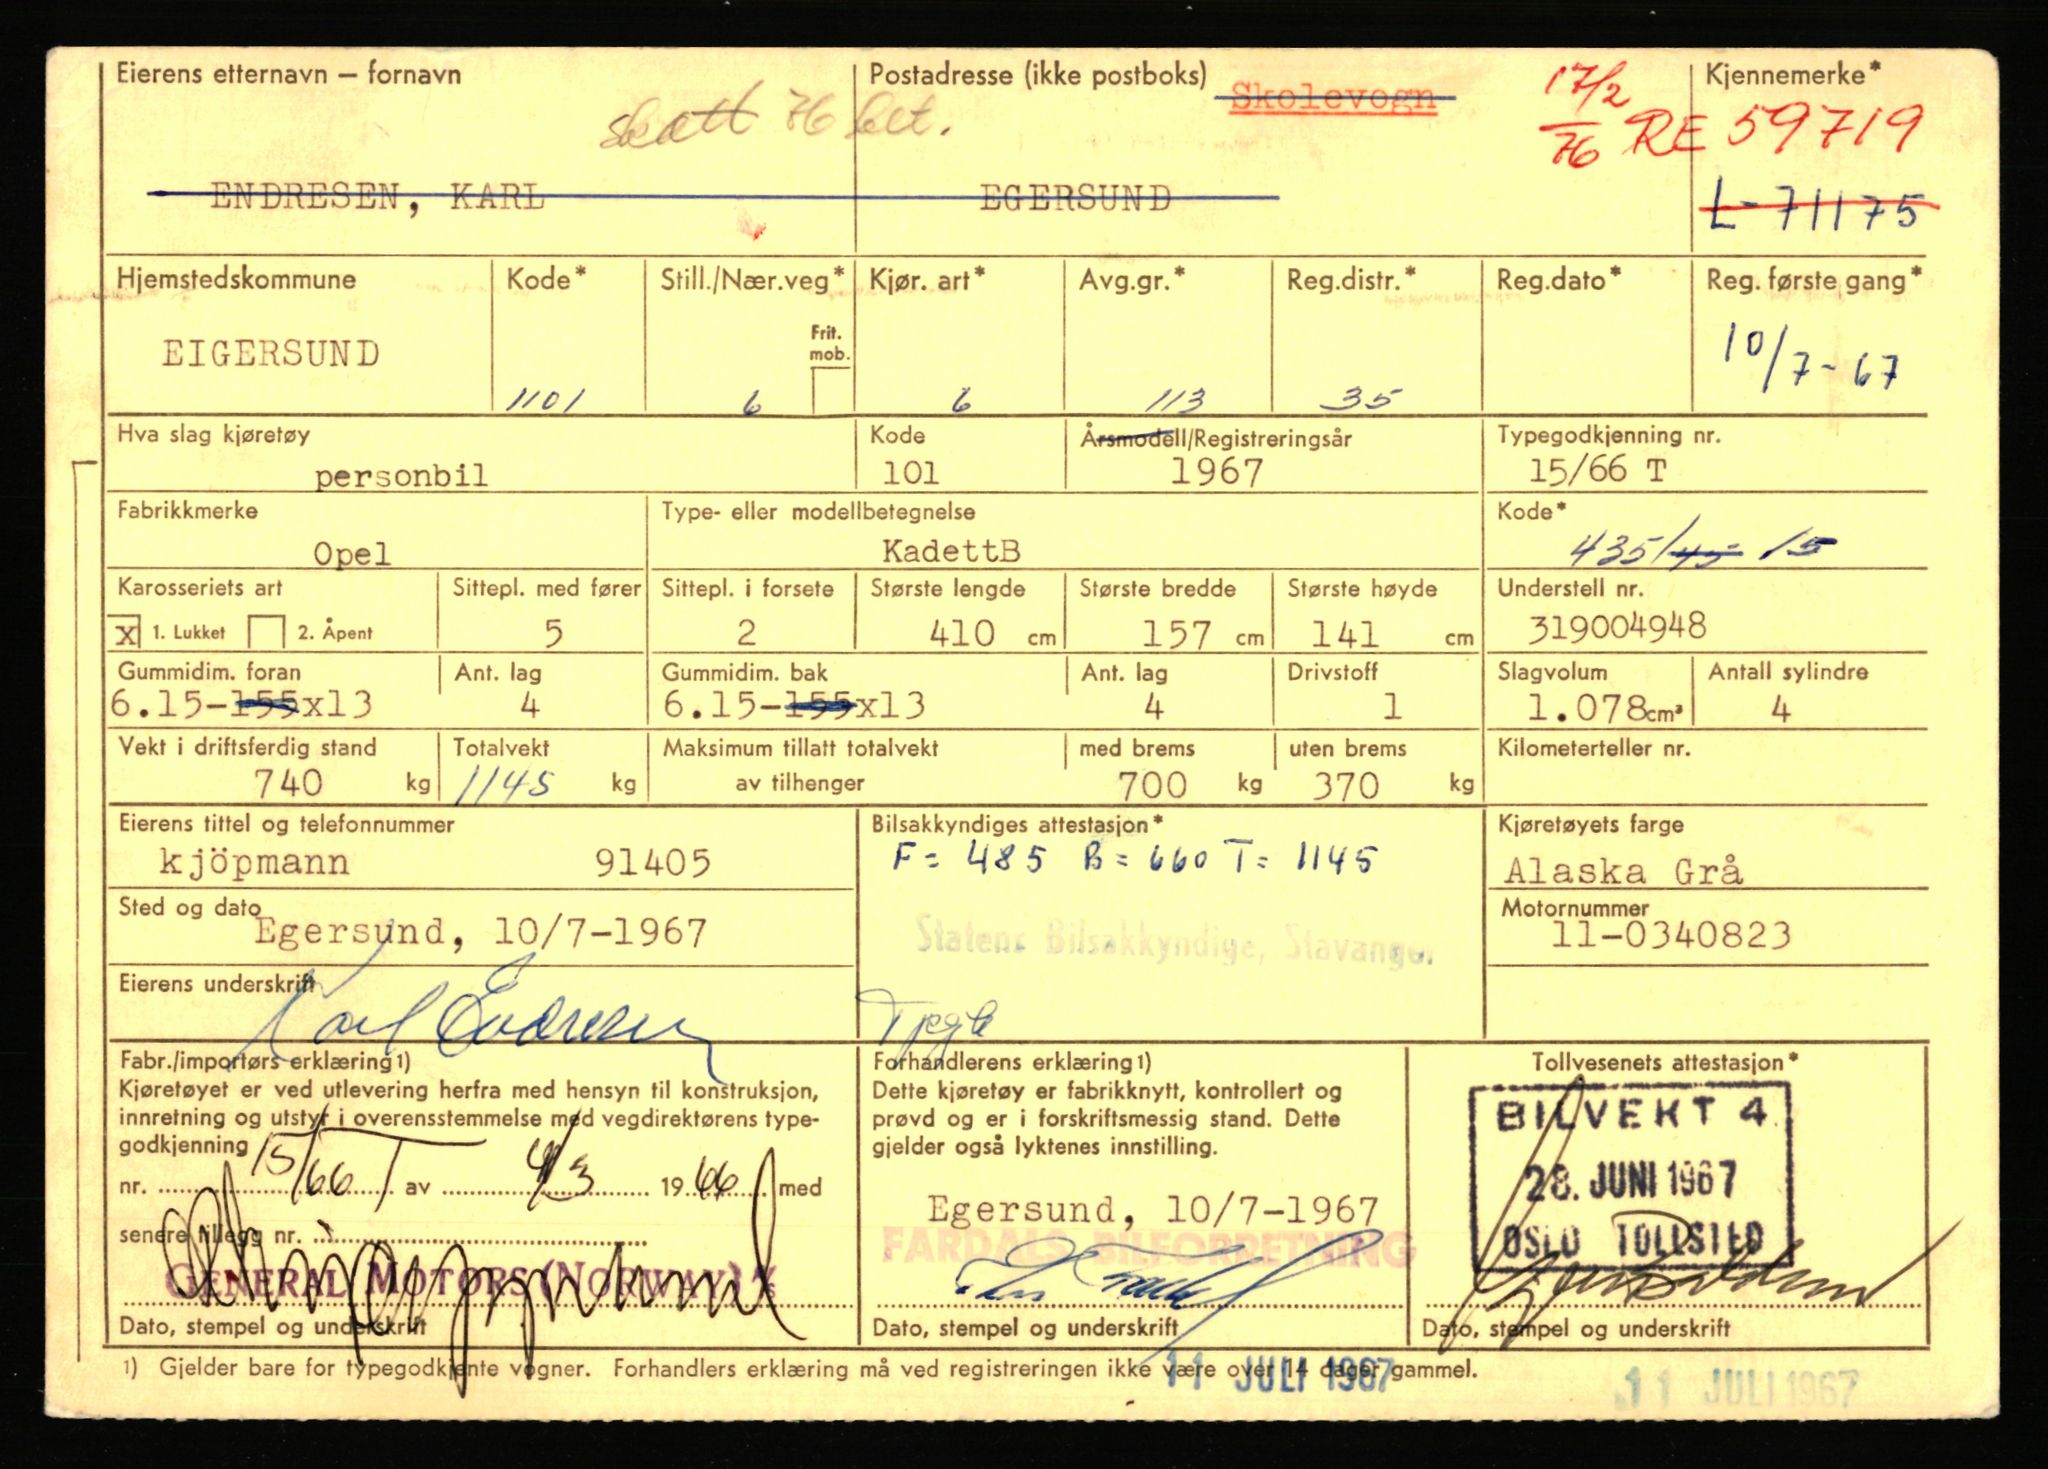 Eierens etternavn – fornavn
Postadresse (ikke postboks)
Skolevogn
17/2 76 RE 59719
Kjennemerke*
skatt 76 bet.
ENDRESEN, KARL
EGERSUND
L-71175
Hjemstedskommune
Kode*
Still./Nær.veg*
Kjør. art*
Avg.gr.*
Reg.distr.*
Reg.dato*
Reg. første gang*
Frit. mob.
EIGERSUND
1101
6
6
113
35
10/7-67
Hva slag kjøretøy
Kode
Årsmodell/Registreringsår
Typegodkjenning nr.
personbil
101
1967
15/66 T
Fabrikkmerke
Type- eller modellbetegnelse
Kode*
Opel
KadettB
435/45 15
Karosseriets art
Sittepl. med fører
Sittepl. i forsete
Største lengde
Største bredde
Største høyde
Understell nr.
x 1. Lukket 2. Åpent
5
2
410 cm
157 cm
141 cm
319004948
Gummidim. foran
Ant. lag
Gummidim. bak
Ant. lag
Drivstoff
Slagvolum
Antall sylindre
6.15-155x13
4
6.15-155x13
4
1
1.078cm³
4
Vekt i driftsferdig stand
Totalvekt
Maksimum tillatt totalvekt
med brems
uten brems
Kilometerteller nr.
740 kg
1145 kg
av tilhenger
700 kg
370 kg
Eierens tittel og telefonnummer
Bilsakkyndiges attestasjon*
Kjøretøyets farge
kjöpmann 91405
F = 485 B = 660 T = 1145
Alaska Grå
Sted og dato
Motornummer
Egersund, 10/7-1967
Statens Bilsakkyndige, Stavanger
11-0340823
Eierens underskrift
Karl Endresen
Fabr./importørs erklæring 1)
Kjøretøyet er ved utlevering herfra med hensyn til konstruksjon,
innretning og utstyr i overensstemmelse med vegdirektørens type-
godkjenning
nr. 15/66 T av 4/3 1966 med
senere tillegg nr.
GENERAL MOTORS (NORWAY) A/S
Dato, stempel og underskrift
Forhandlerens erklæring 1)
Dette kjøretøy er fabrikknytt, kontrollert og
prøvd og er i forskriftsmessig stand. Dette
gjelder også lyktenes innstilling.
Egersund, 10/7-1967
FARDALS BILFORRETNING
Dato, stempel og underskrift
Tollvesenets attestasjon*
BILVEKT 4
28. JUNI 1967
OSLO TOLLSTED
Dato, stempel og underskrift
1) Gjelder bare for typegodkjente vogner. Forhandlers erklæring må ved registreringen ikke være over 14 dager gammel.
11 JULI 1967
11 JULI 1967